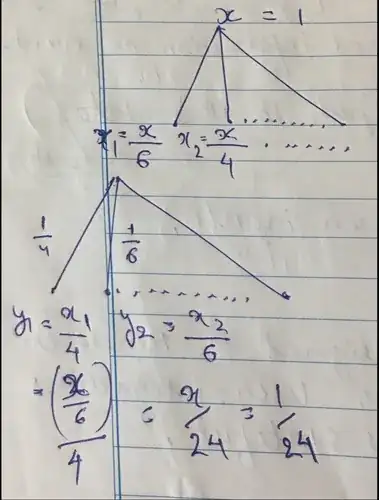 x = 1
x₁ = x/6 x₂ = x/4 . ......
1/4 1/6
y₁ = x₁/4 y₂ = x₂/6
= (x/6)/4 = x/24 = 1/24